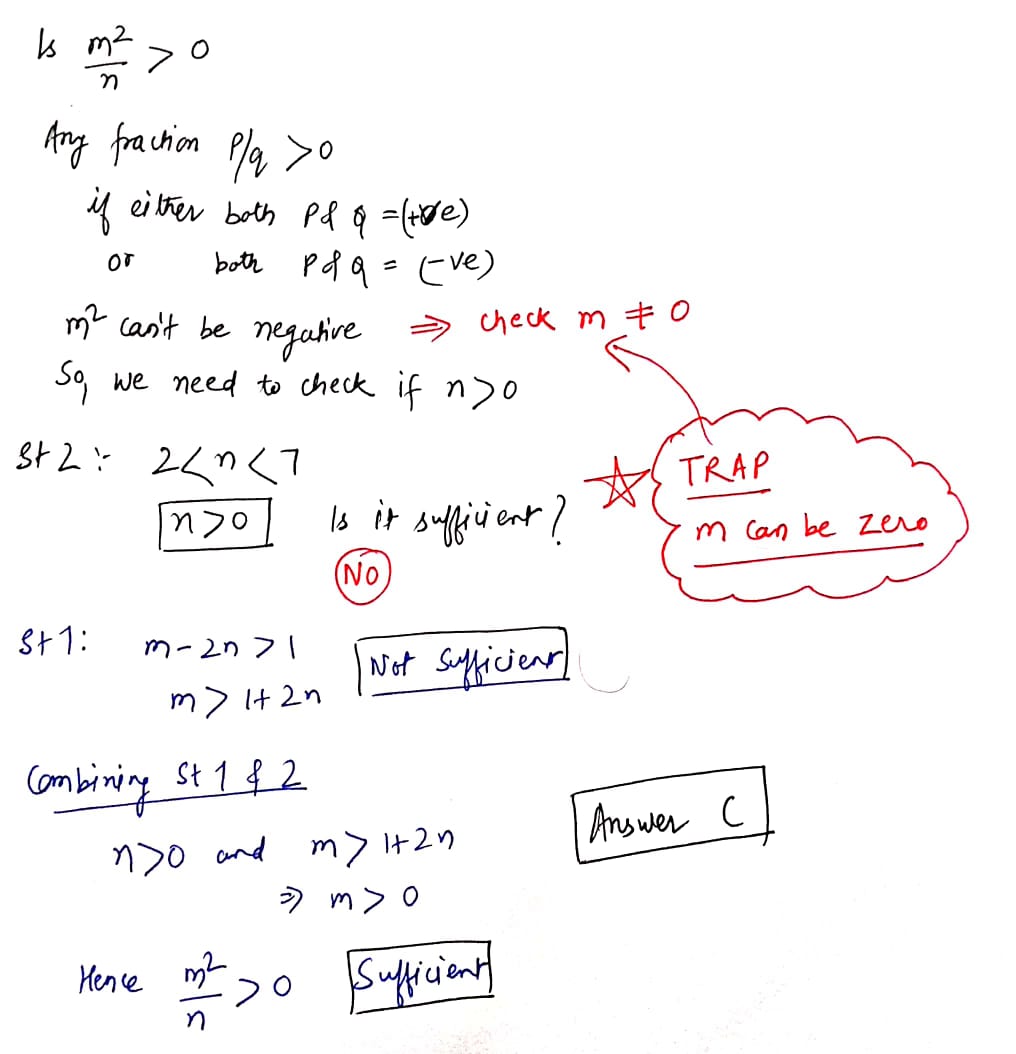 Is m²/n > 0
Any fraction P/q > 0
if either both P & q = (+ve)
or both P & q = (-ve)
m² can't be negative ⇒ check m ≠ 0
So, we need to check if n > 0
St 2 :- 2 < n < 7
TRAP
n > 0 Is it sufficient?
m can be zero
NO
St 1: m - 2n > 1
Not Sufficient
m > 1 + 2n
Combining St 1 & 2
Answer C
n > 0 and m > 1 + 2n
⇒ m > 0
Hence m²/n > 0 Sufficient